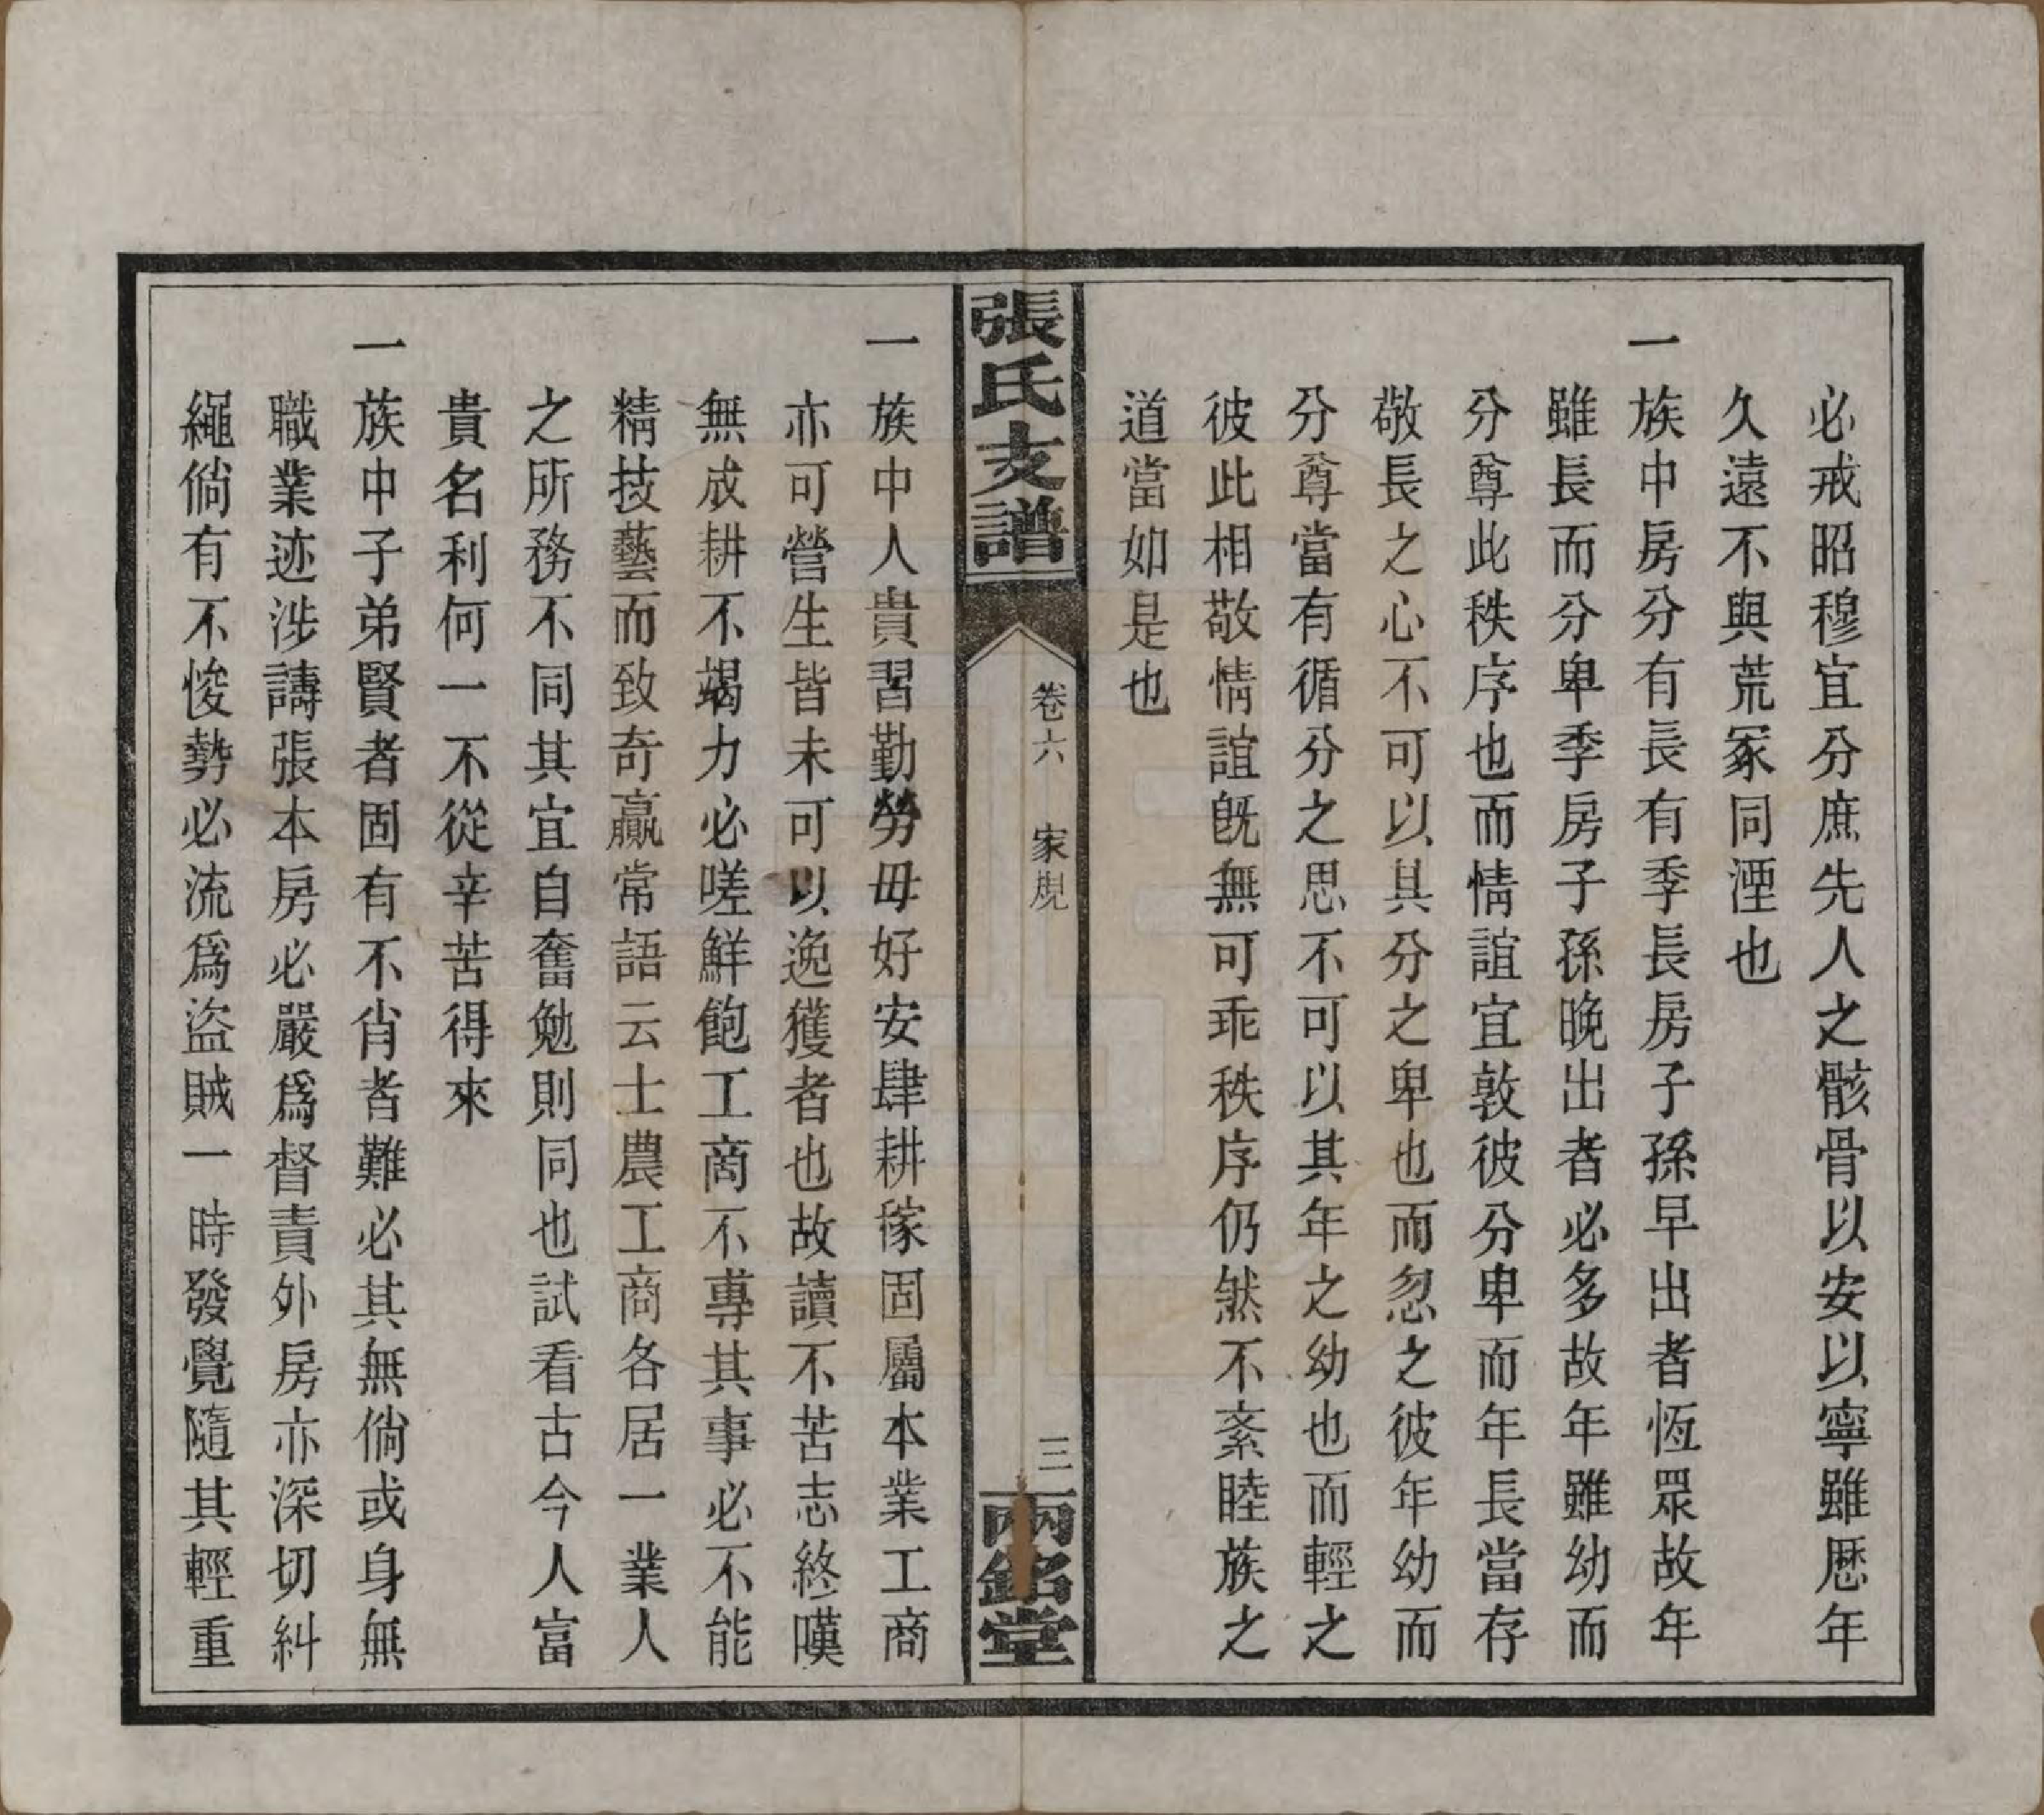 必戒昭穆宜分庶先人之骸骨以安以寧雖歷年
久遠不與荒冢同湮也
一族中房分有長有季長房子孫早出者恆眾故年
雖長而分卑季房子孫晚出者必多故年雖幼而
分尊此秩序也而情誼宜敦彼分卑而年長當存
敬長之心不可以其分之卑也而忽之彼年幼而
分尊當有循分之思不可以其年之幼也而輕之
彼此相敬情誼既無可乖秩序仍然不紊睦族之
道當如是也
張氏支譜
卷六
家規
三
兩銘堂
一族中人貴習勤勞毋好安肆耕稼固屬本業工商
亦可營生皆未可以逸獲者也故讀不苦志終嘆
無成耕不竭力必嗟鮮飽工商不專其事必不能
精技藝而致奇贏常語云士農工商各居一業人
之所務不同其宜自奮勉則同也試看古今人富
貴名利何一不從辛苦得來
一族中子弟賢者固有不肖者難必其無倘或身無
職業迹涉譸張本房必嚴爲督責外房亦深切糾
繩倘有不悛勢必流爲盜賊一時發覺隨其輕重